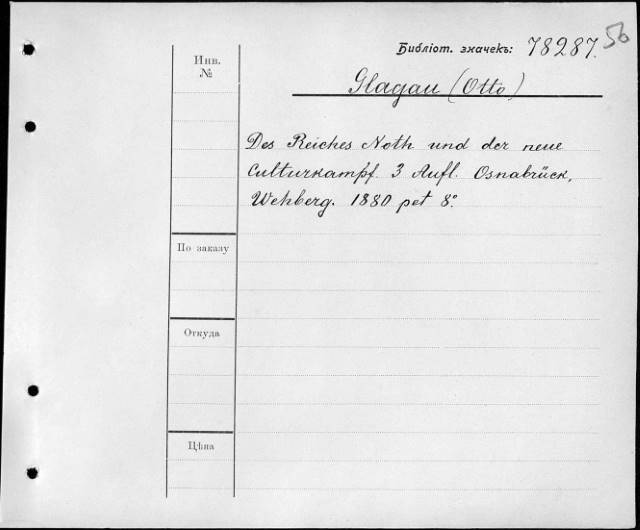 56
Библіот. значекъ: 78287.
Инв.
№
Glagau (Otto)
Des Reiches Noth und der neue
Culturkampf. 3 Aufl. Osnabrück,
Wehberg. 1880 pet 8°.
По заказу
Откуда
Цѣна